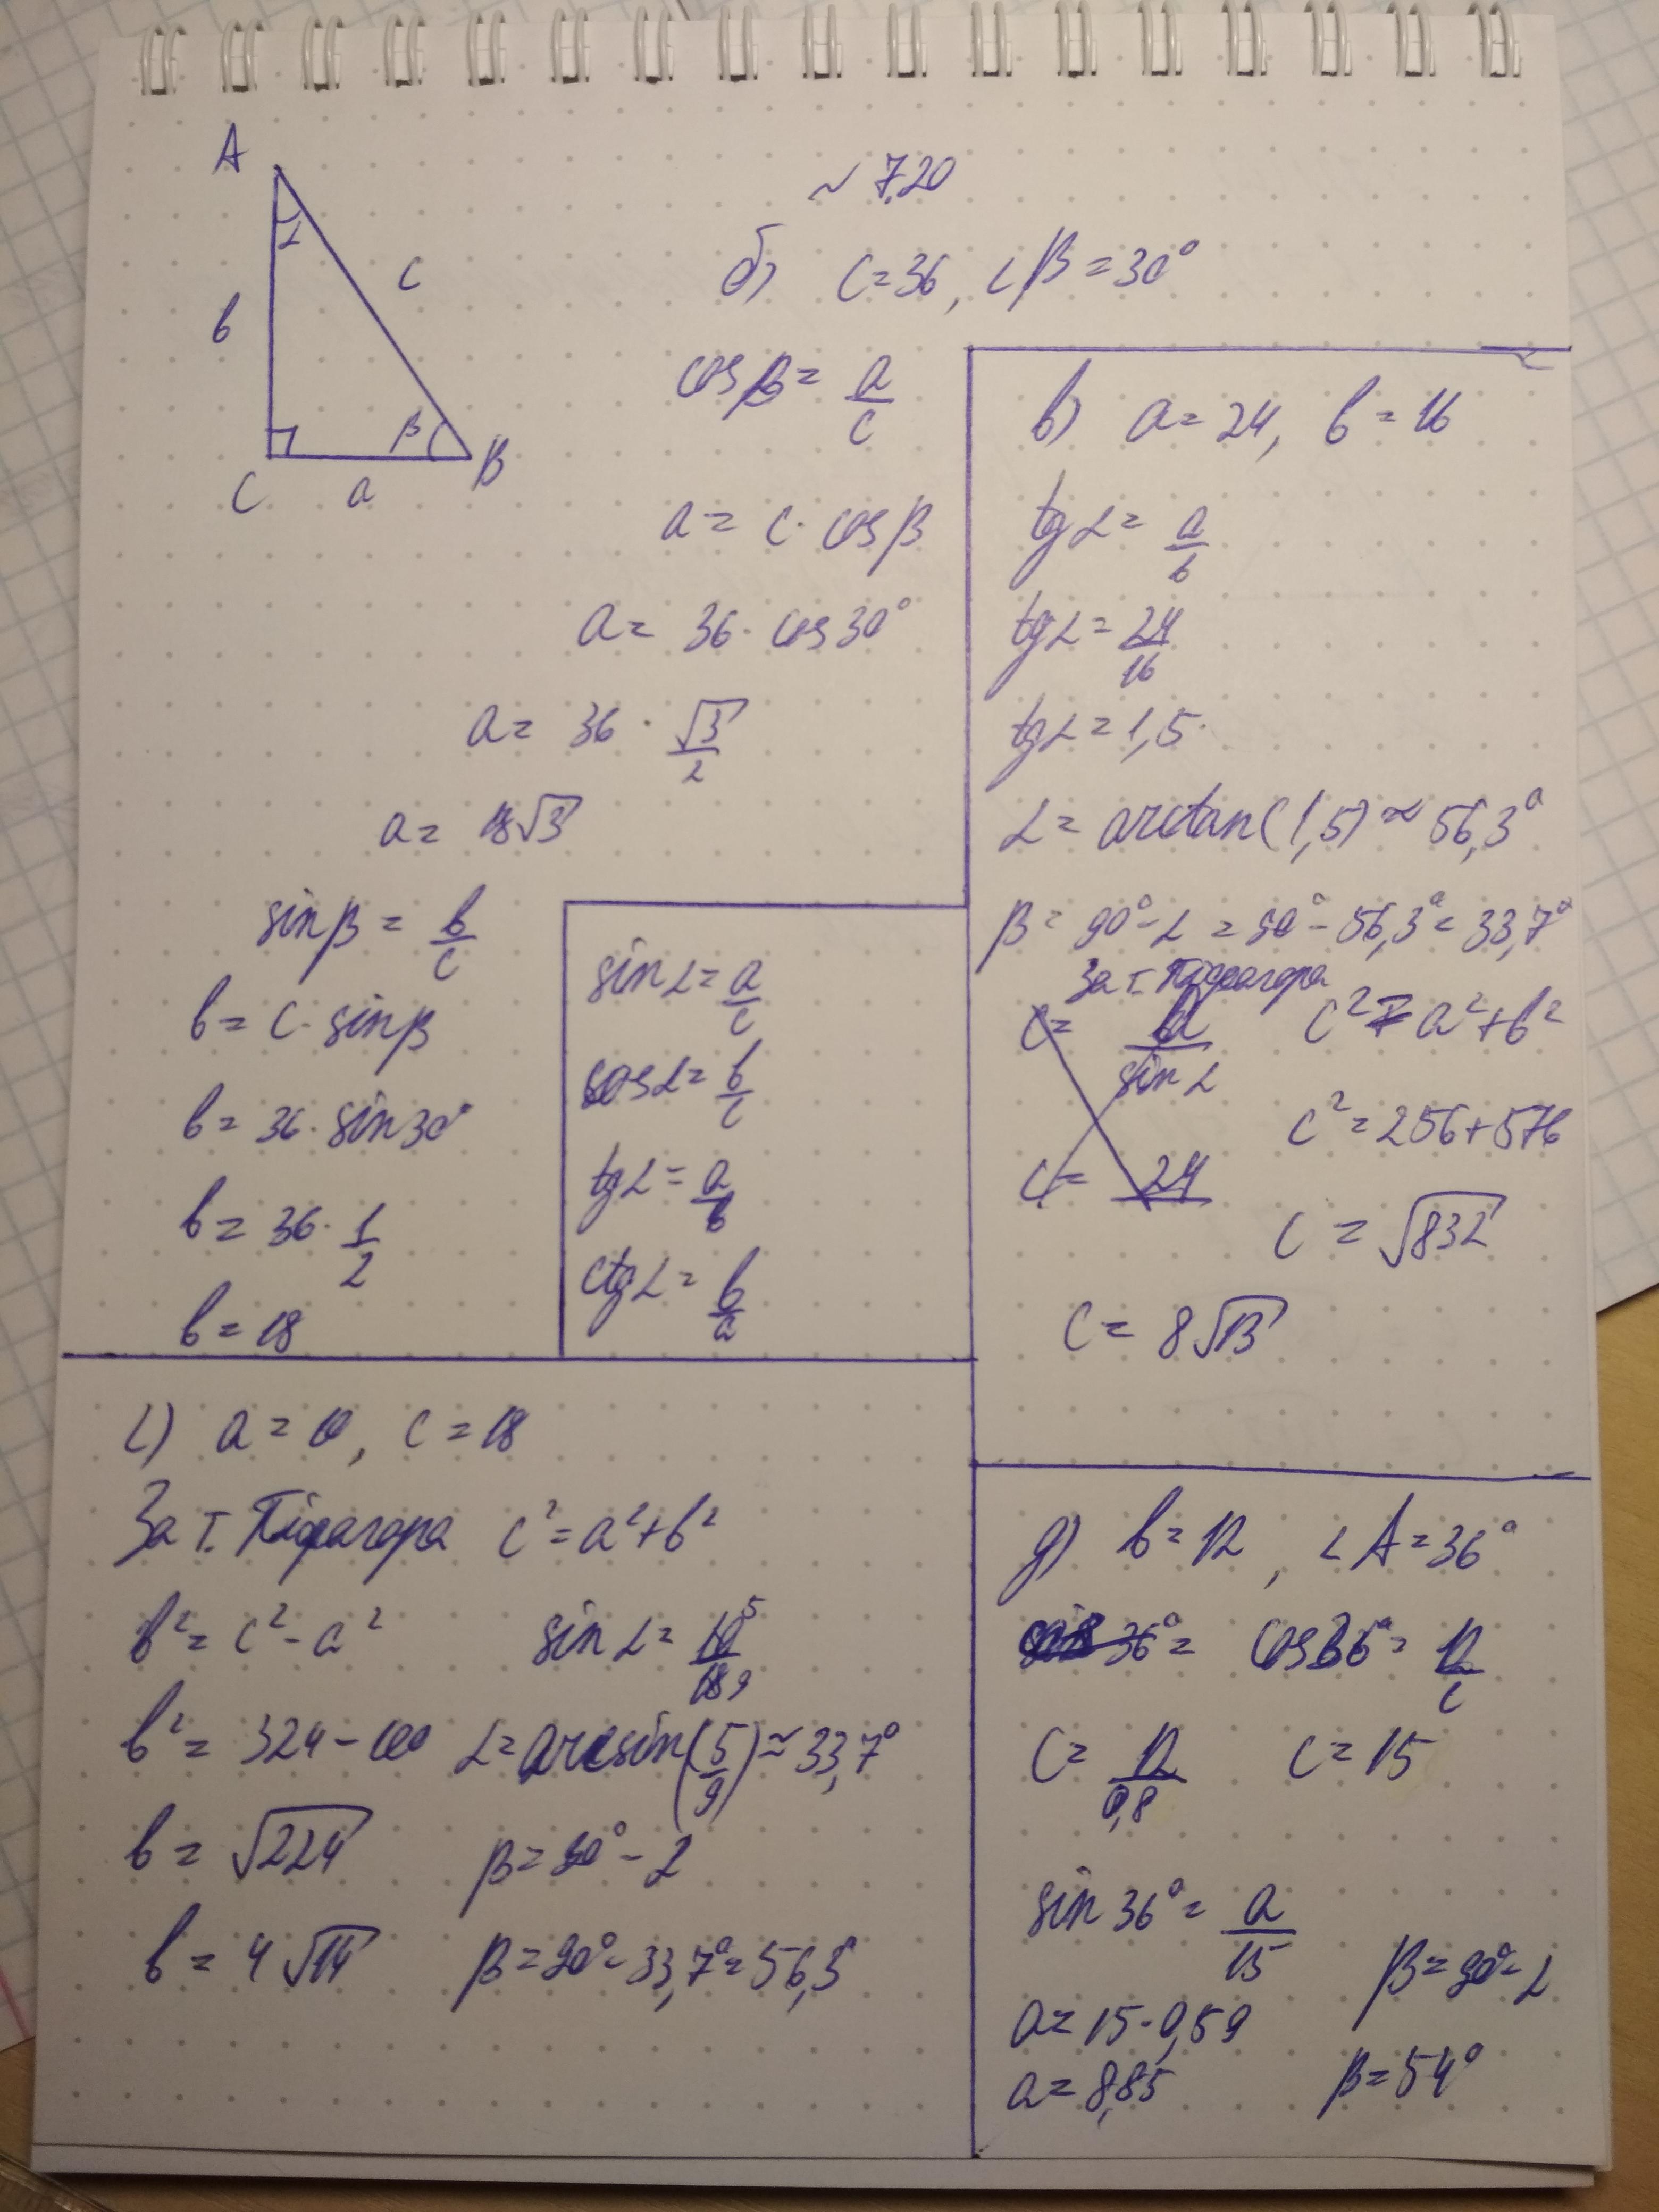 A
α
b
c
C
a
β
B
~ 7.20
б) c=36, ∠β=30°
cosβ = a/c
a = c · cosβ
a = 36 · cos30°
a = 36 · √3/2
a = 18√3
sinβ = b/c
b = c · sinβ
b = 36 · sin30°
b = 36 · 1/2
b = 18
sinα = a/c
cosα = b/c
tgα = a/b
ctgα = b/a
в) a = 24, b = 16
tgα = a/b
tgα = 24/16
tgα = 1,5
α = arctan(1,5) ≈ 56,3°
β = 90° - α = 90° - 56,3° = 33,7°
За т. Піфагора
c = a/sinα
c = 24
c² = a² + b²
c² = 256 + 576
c = √832
c = 8√13
г) a = 10, c = 18
За т. Піфагора c² = a² + b²
b² = c² - a²
b² = 324 - 100
b = √224
b = 4√14
sinα = 10/18 5 9
α = arcsin(5/9) ≈ 33,7°
β = 90° - α
β = 90° - 33,7° = 56,3
д) b = 12, ∠A = 36°
36° =
cos36° = 12/c
c = 12/0,8
c = 15
sin36° = a/15
a = 15 · 0,59
a = 8,85
β = 90° - α
β = 54°